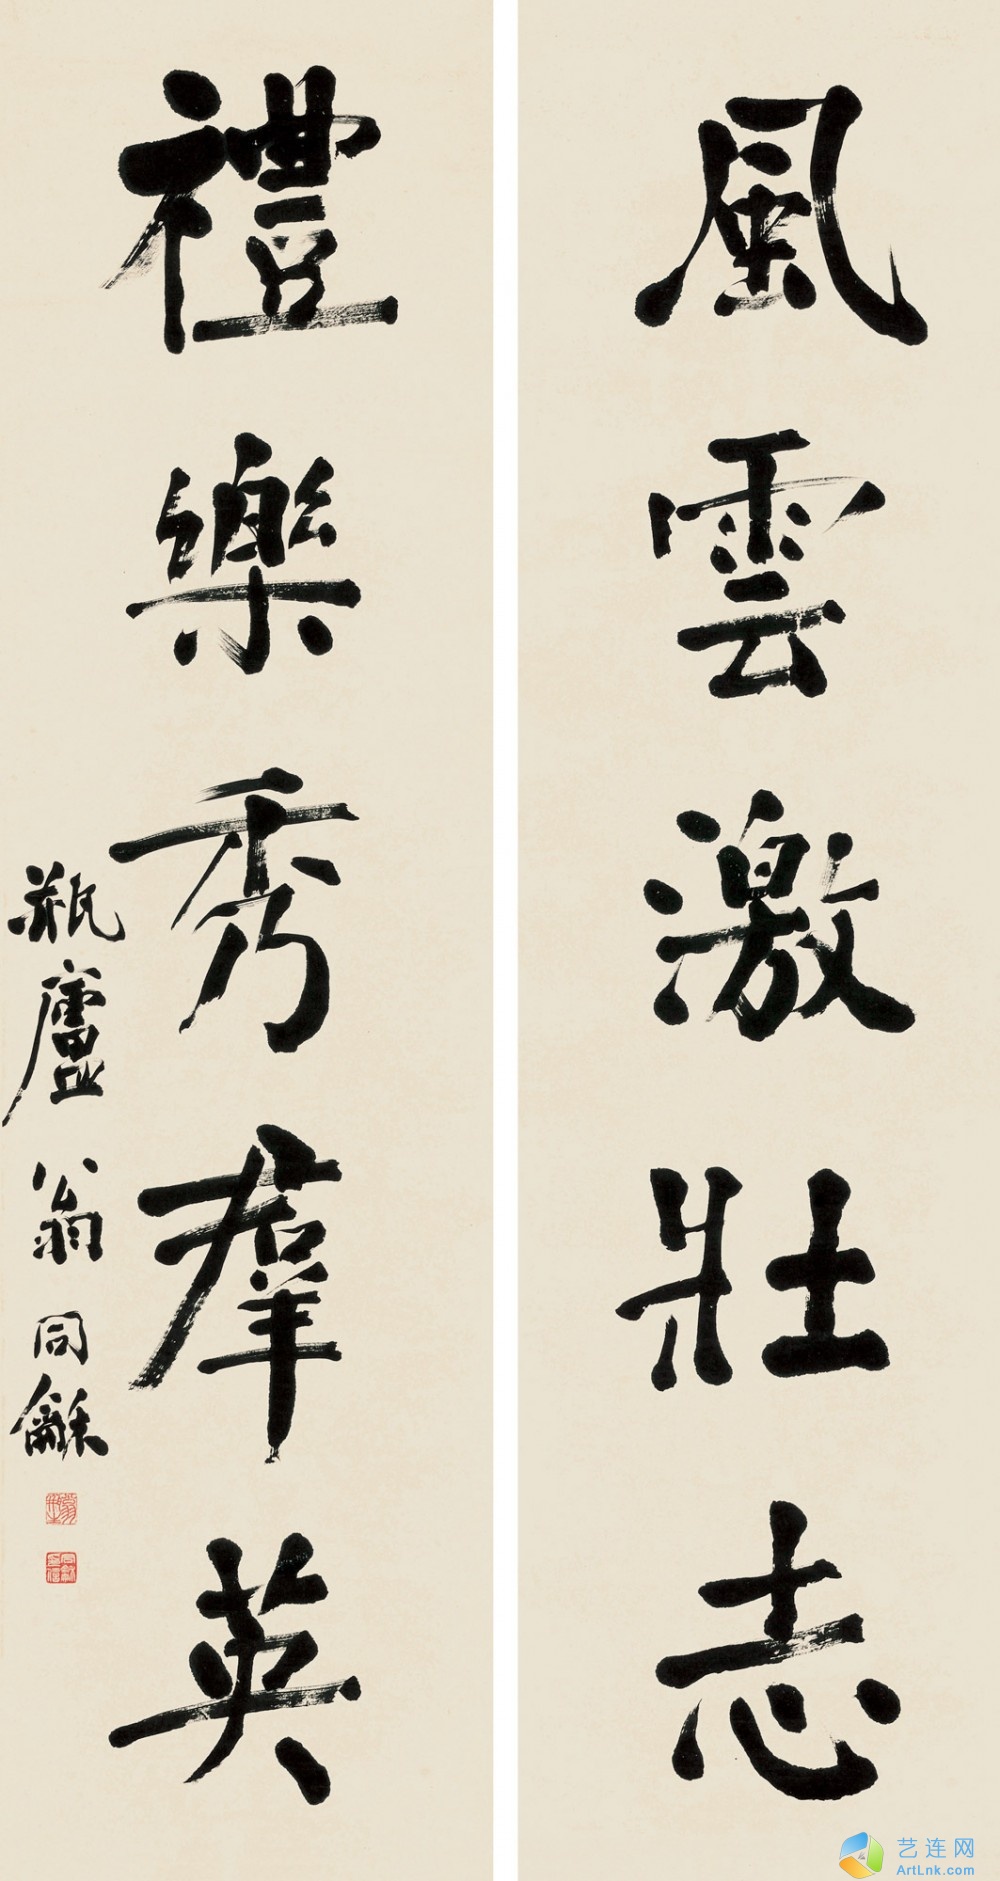 風雲激壯志
禮樂秀羣英
瓶廬翁同龢
艺连网
ArtLnk.com